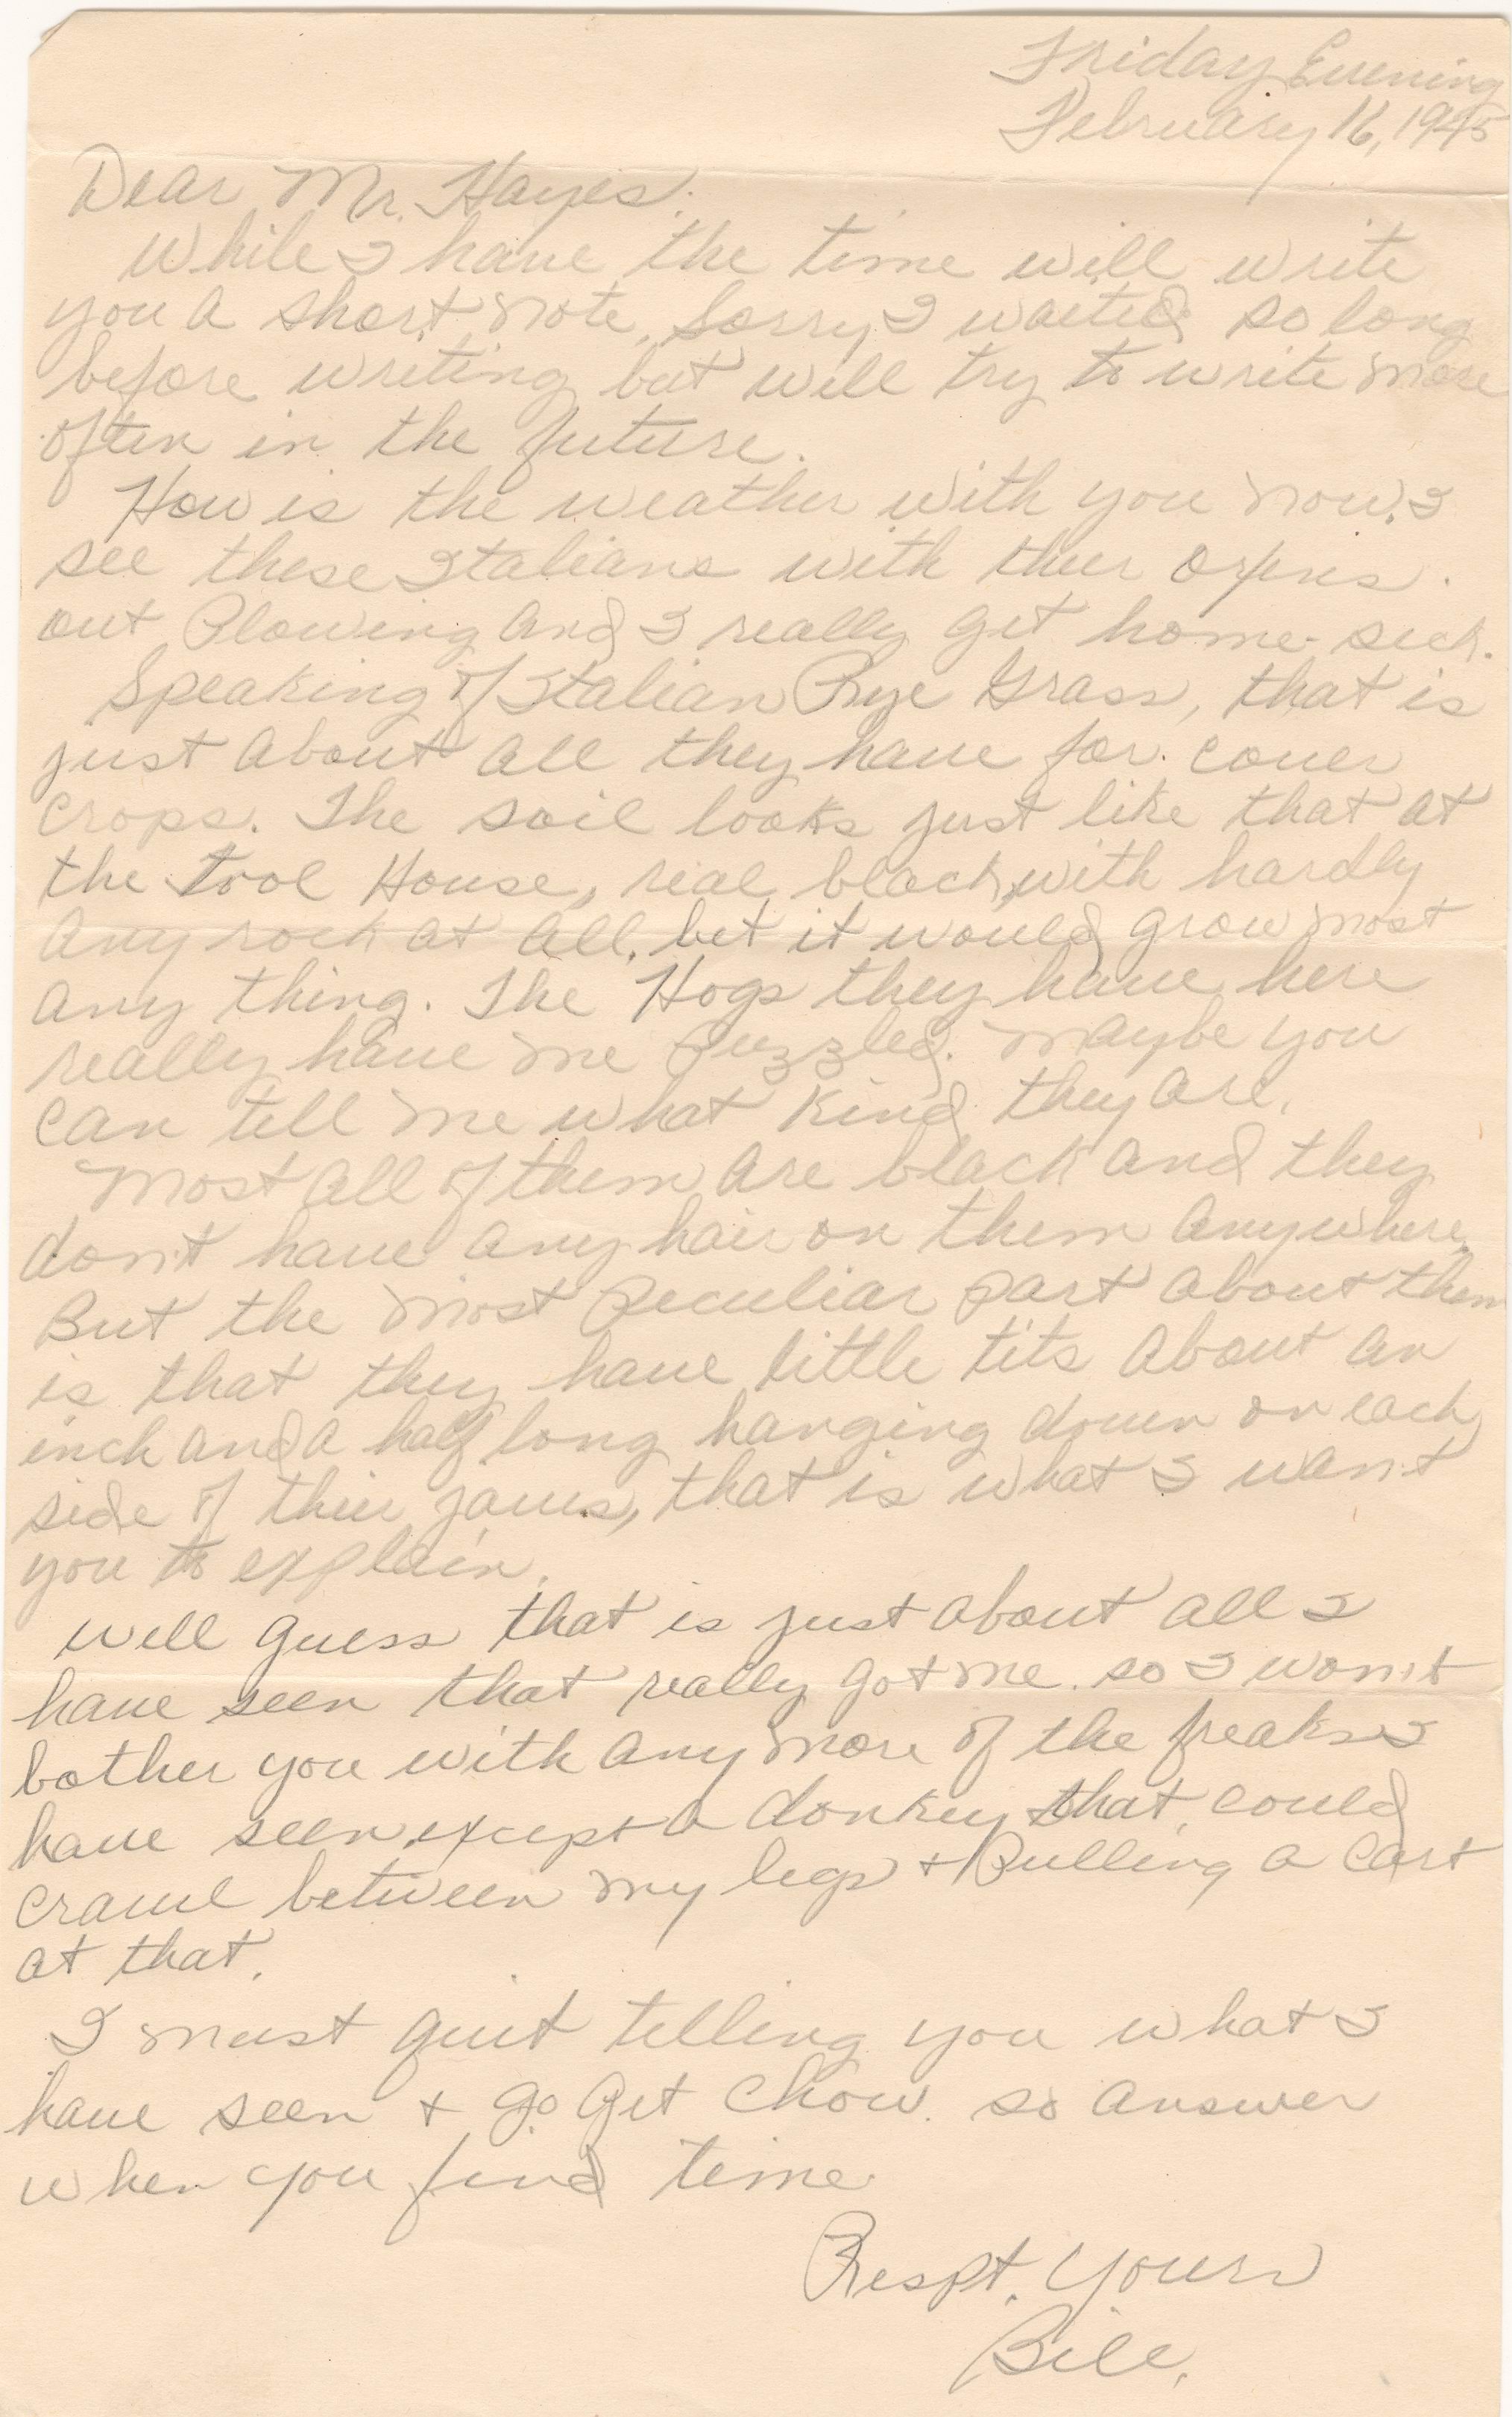 Friday Evening
February 16, 1945
Dear Mr. Hayes.
While I have the time will write
you a short note, Sorry I waited so long
before writing but will try to write more
often in the future.
How is the weather with you now. I
see these Italians with their
out Plowing and I really get home sick.
Speaking of Italian Rye Grass, that is
just about all they have for cover
crops. The soil looks just like that at
the Tool House, real black, with hardly
any rock at all. but it would grow most
any thing. The Hogs they have here
really have me Puzzled. Maybe you
can tell me what kind they are.
Most all of them are black and they
don't have any hair on them anywhere.
But the most Peculiar part about them
is that they have little tits about an
inch and a half long hanging down on each
side of their jaws, that is what I want
you to explain.
Well guess that is just about all I
have seen that really got me. so I won't
bother you with any more of the freaks I
have seen, except a donkey that could
crawl between my legs + Pulling a cart
at that.
I must quit telling you what I
have seen + go get chow. so answer
when you find time.
Respt. Yours
Bill.